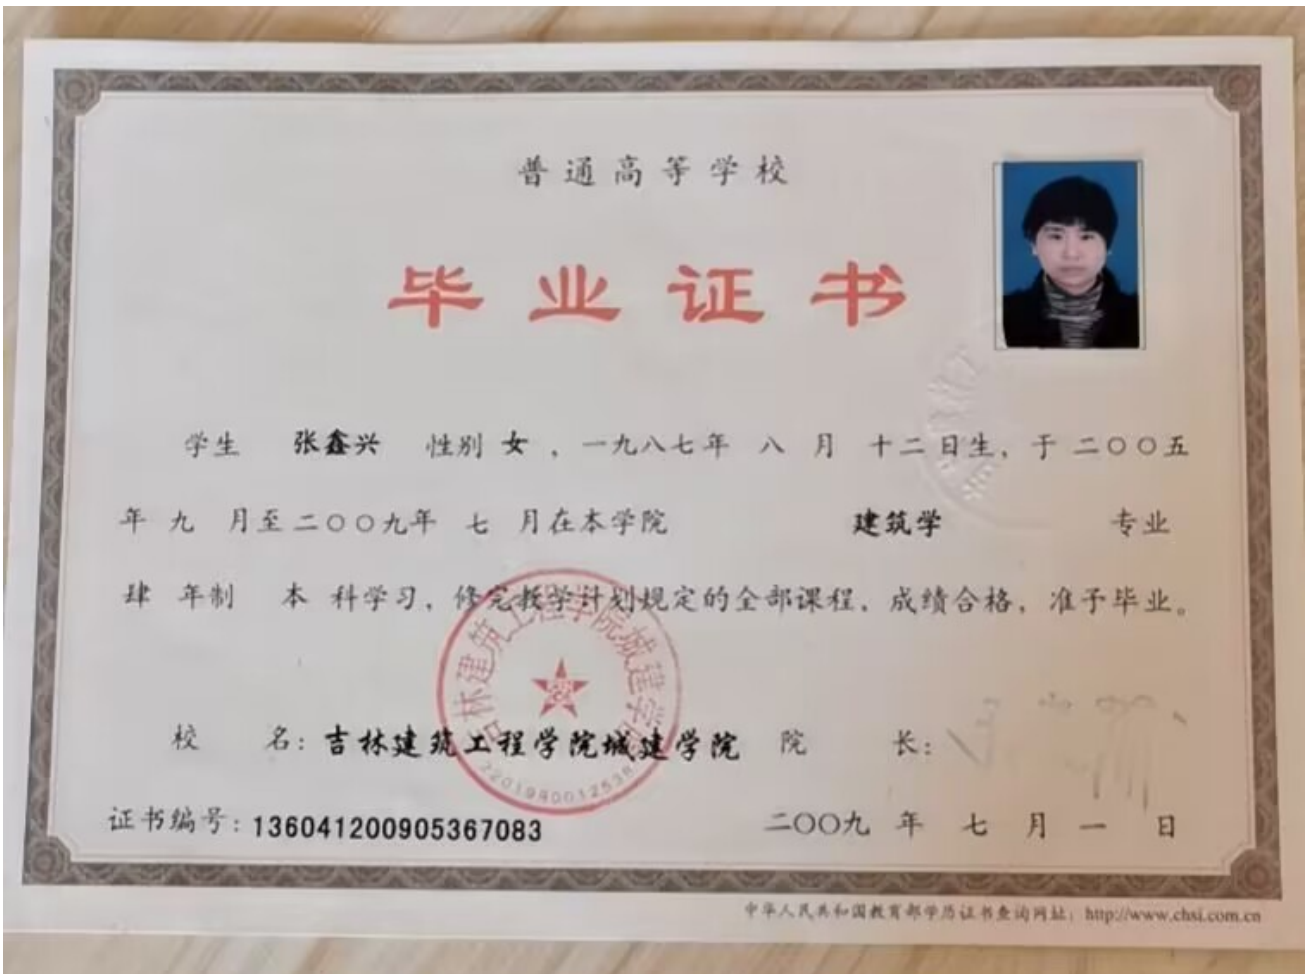 普通高等学校
毕业证书
学生 张鑫兴 性别 女 ，一九八七年 八 月 十二日生，于 二〇〇五
年 九 月至二〇〇九年 七 月在本学院 建筑学 专业
肆 年制 本 科学习，修完教学计划规定的全部课程，成绩合格，准予毕业。
吉林建筑工程学院城建学院
2201980012538
校 名：吉林建筑工程学院城建学院 院 长：
证书编号：136041200905367083 二〇〇九 年 七 月 一 日
中华人民共和国教育部学历证书查询网址：http://www.chsi.com.cn